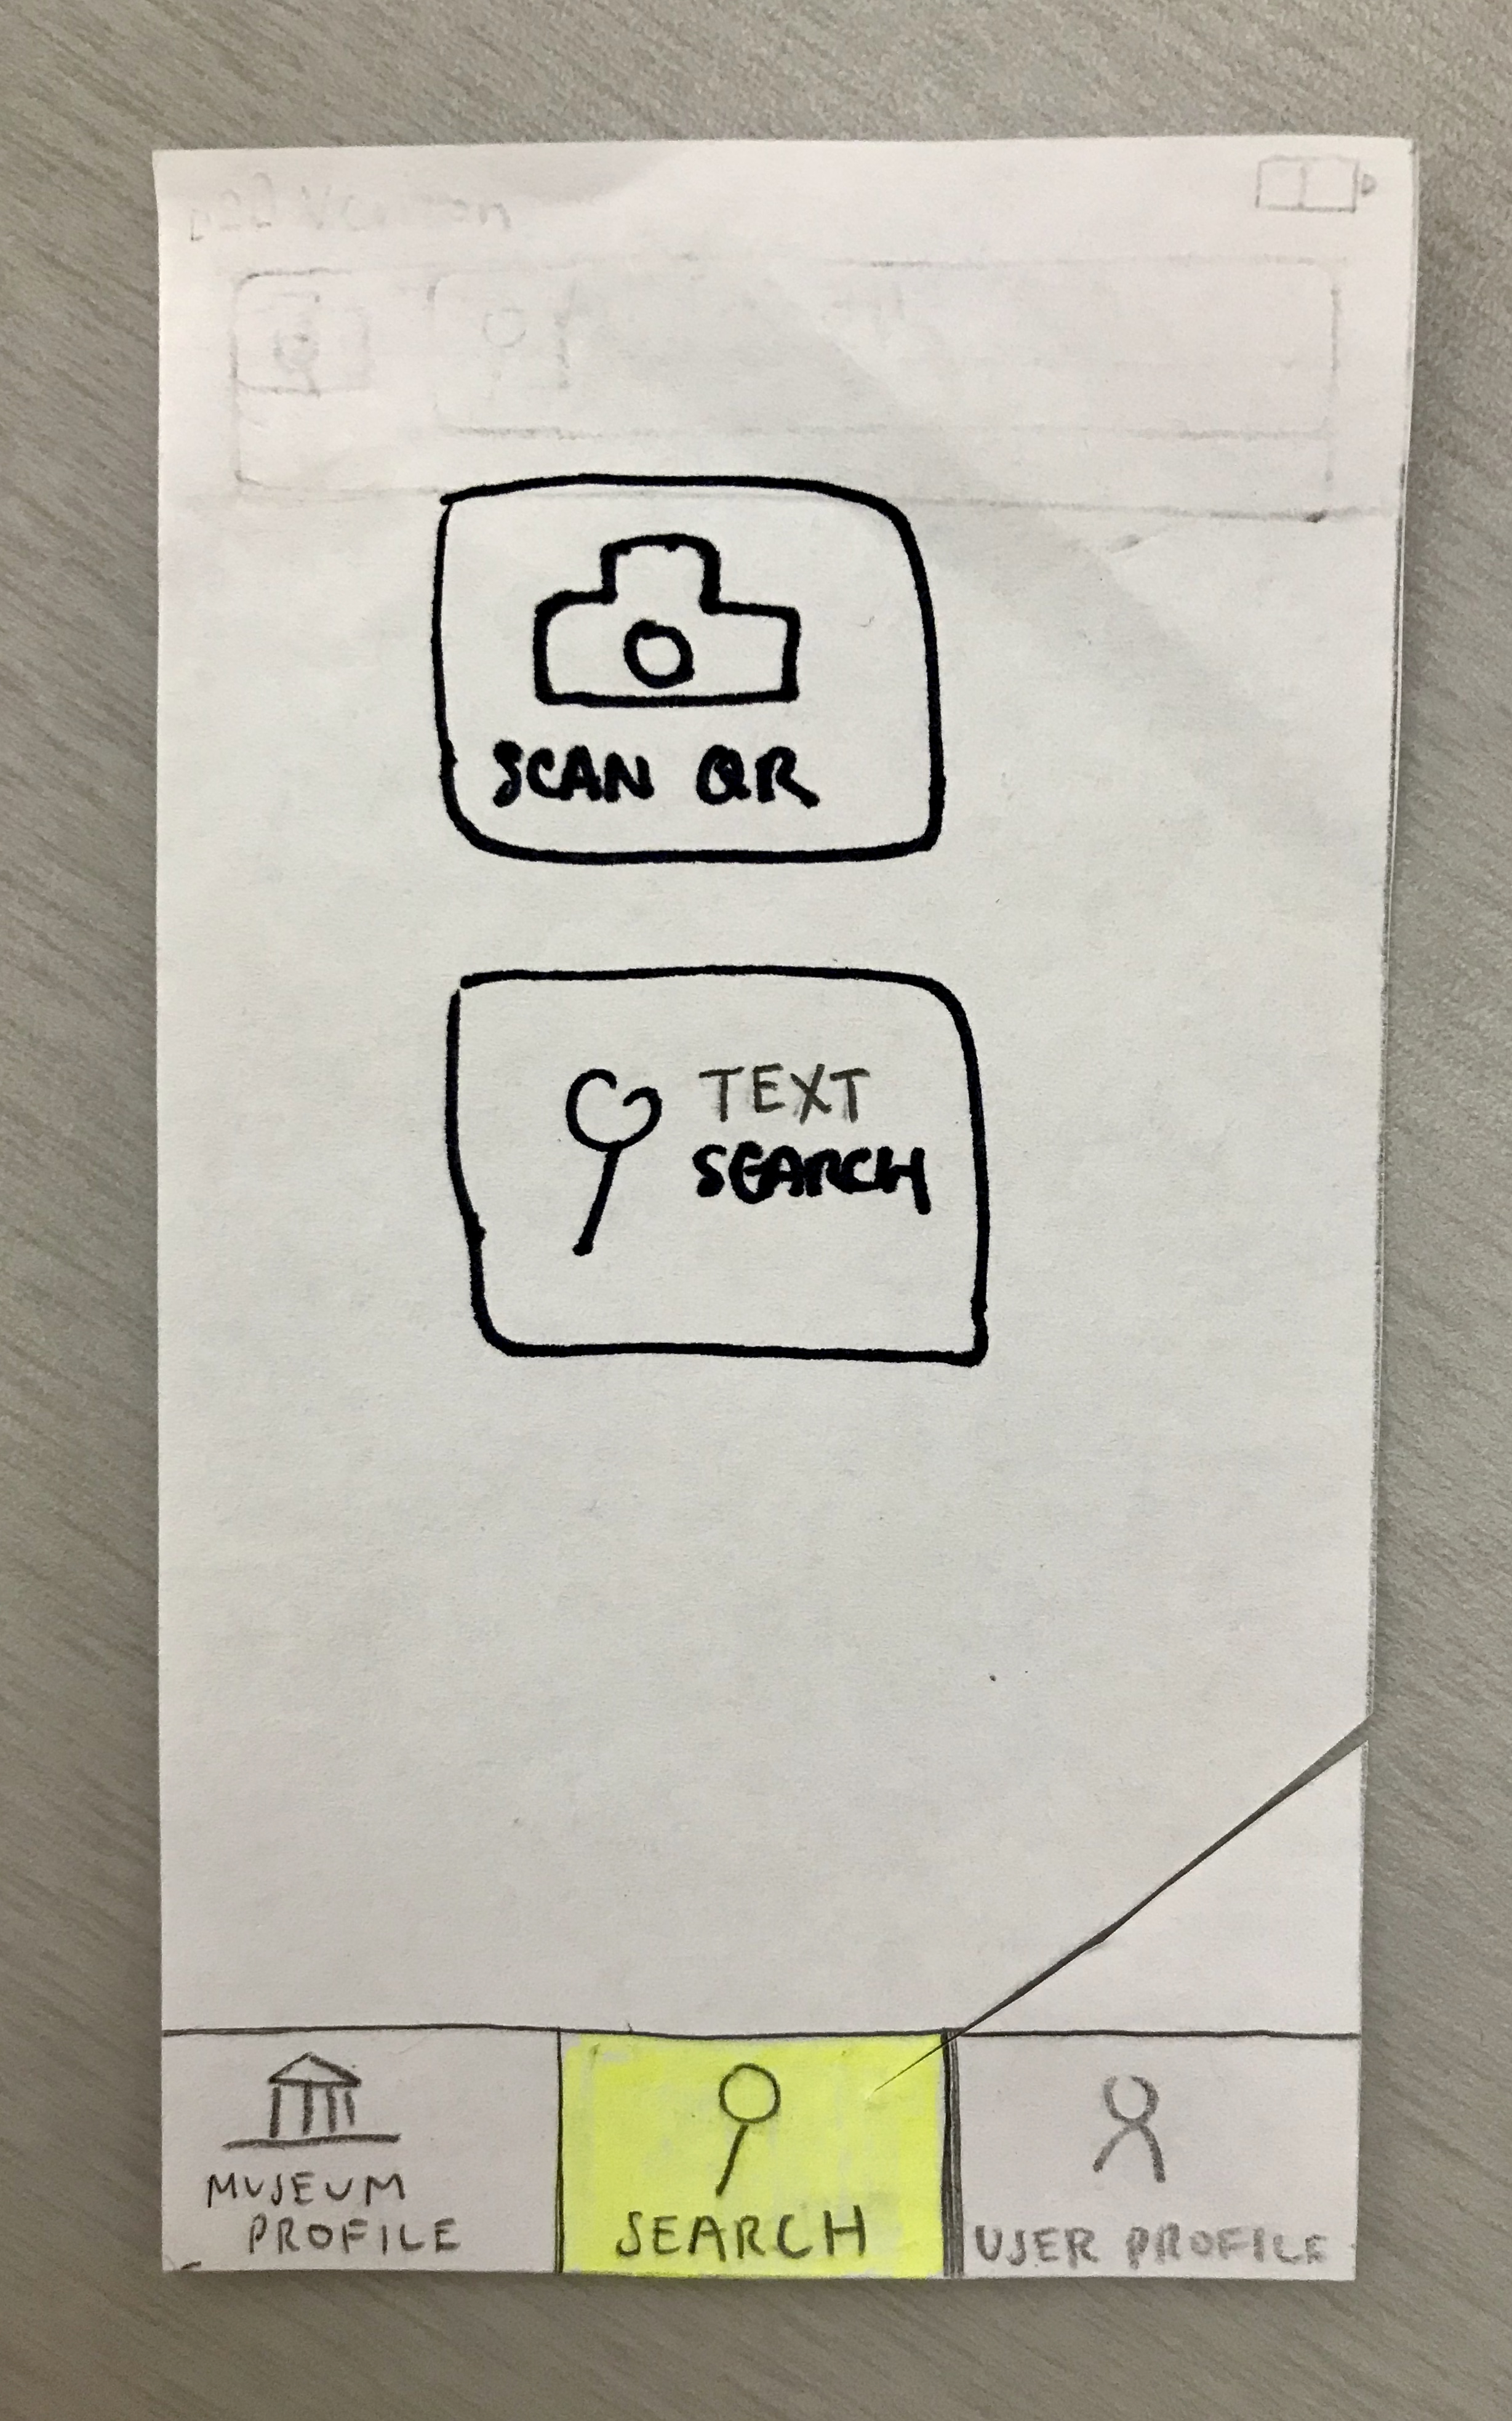 SCAN QR
TEXT
SEARCH
MUSEUM
PROFILE
SEARCH
USER PROFILE